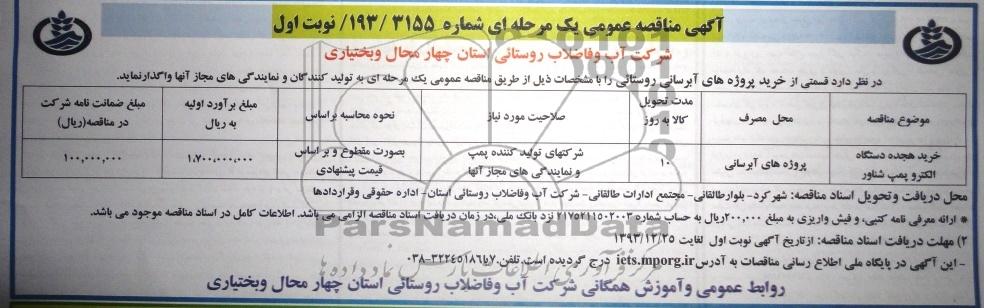 آگهی مناقصه عمومی یک مرحله ای شماره ۳۱۵۵ /۱۹۳/ نوبت اول
شرکت آب وفاضلاب روستائی استان چهار محال وبختیاری
در نظر دارد قسمتی از خرید پروژه های آبرسانی روستائی را با مشخصات ذیل از طریق مناقصه عمومی یک مرحله ای به تولید کنندگان و نمایندگی های مجاز آنها واگذارنماید.
موضوع مناقصه محل مصرف مدت تحویل کالا به روز صلاحیت مورد نیاز نحوه محاسبه براساس مبلغ برآورد اولیه به ریال مبلغ ضمانت نامه شرکت در مناقصه(ریال)
خرید هجده دستگاه الکترو پمپ شناور پروژه های آبرسانی ۱۰ شرکتهای تولید کننده پمپ و نمایندگی های مجاز آنها بصورت مقطوع و بر اساس قیمت پیشنهادی ۱،۷۰۰،۰۰۰،۰۰۰ ۱۰۰،۰۰۰،۰۰۰
محل دریافت وتحویل اسناد مناقصه: شهرکرد- بلوارطالقانی- مجتمع ادارات طالقانی- شرکت آب وفاضلاب روستائی استان- اداره حقوقی وقراردادها
* ارائه معرفی نامه کتبی، و فیش واریزی به مبلغ ۲۰۰،۰۰۰ریال به حساب شماره ۲۱۷۵۲۱۱۵۰۲۰۰۳ نزد بانک ملی،در زمان دریافت اسناد مناقصه الزامی می باشد. اطلاعات کامل در اسناد مناقصه موجود می باشد.
۲) مهلت دریافت اسناد مناقصه: ازتاریخ آگهی نوبت اول لغایت ۱۳۹۳/۱۲/۲۵
- این آگهی در پایگاه ملی اطلاع رسانی مناقصات به آدرس iets.mporg.ir درج گردیده است.تلفن ۷یا۳۲۲۴۵۱۸۶-۰۳۸
روابط عمومی وآموزش همگانی شرکت آب وفاضلاب روستائی استان چهار محال وبختیاری
ParsNamadData